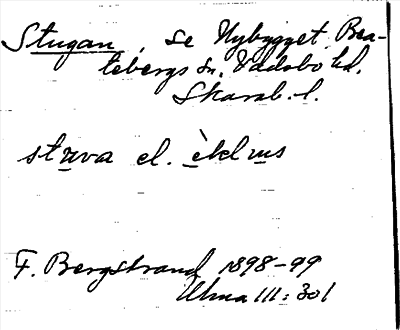 Stugan, se Nybygget, Bea-
tebergs sn, Vadsbo hd,
Skarab. l.
stuva el. èklus
F. Bergstrand 1898-99
Ulma 111:301